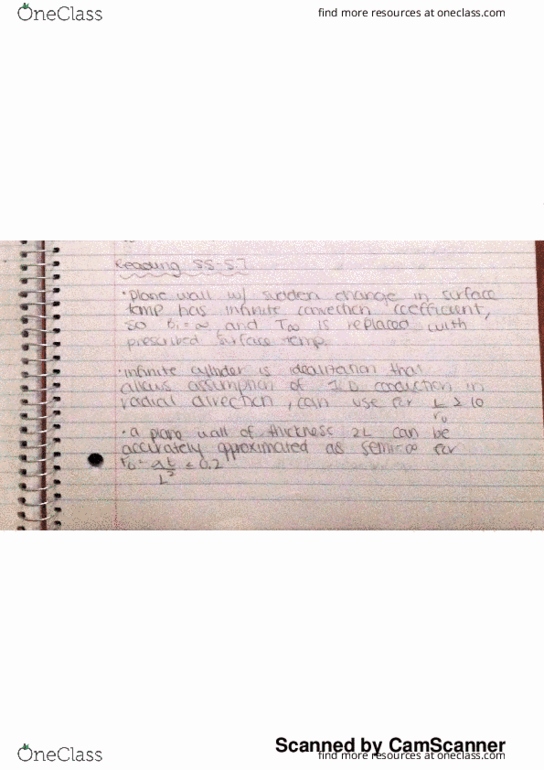 OneClass
find more resources at oneclass.com
Reading 5.5-5.7
• plane wall w/ sudden change in surface
temp has infinite convection coefficient,
so Bi = ∞ and T∞ is replaced with
prescribed surface temp.
• infinite cylinder is idealization that
allows assumption of 1D conduction in
radial direction, can use for L/r₀ ≥ 10
• a plane wall of thickness 2L can be
accurately approximated as semi-∞ for
Fo = αt/L² ≤ 0.2
Scanned by CamScanner
OneClass
find more resources at oneclass.com